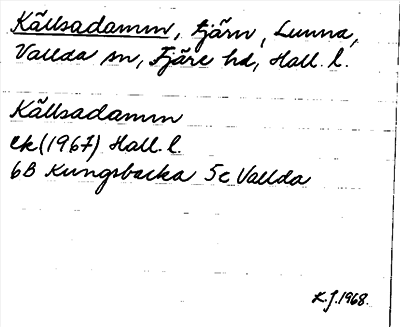 Källsadamm, tjärn, Lunna,
Vallda sn, Fjäre hd, Hall. l.
Källsadamm
ek (1967) Hall. l.
6B Kungsbacka 5c Vallda
K.J. 1968.